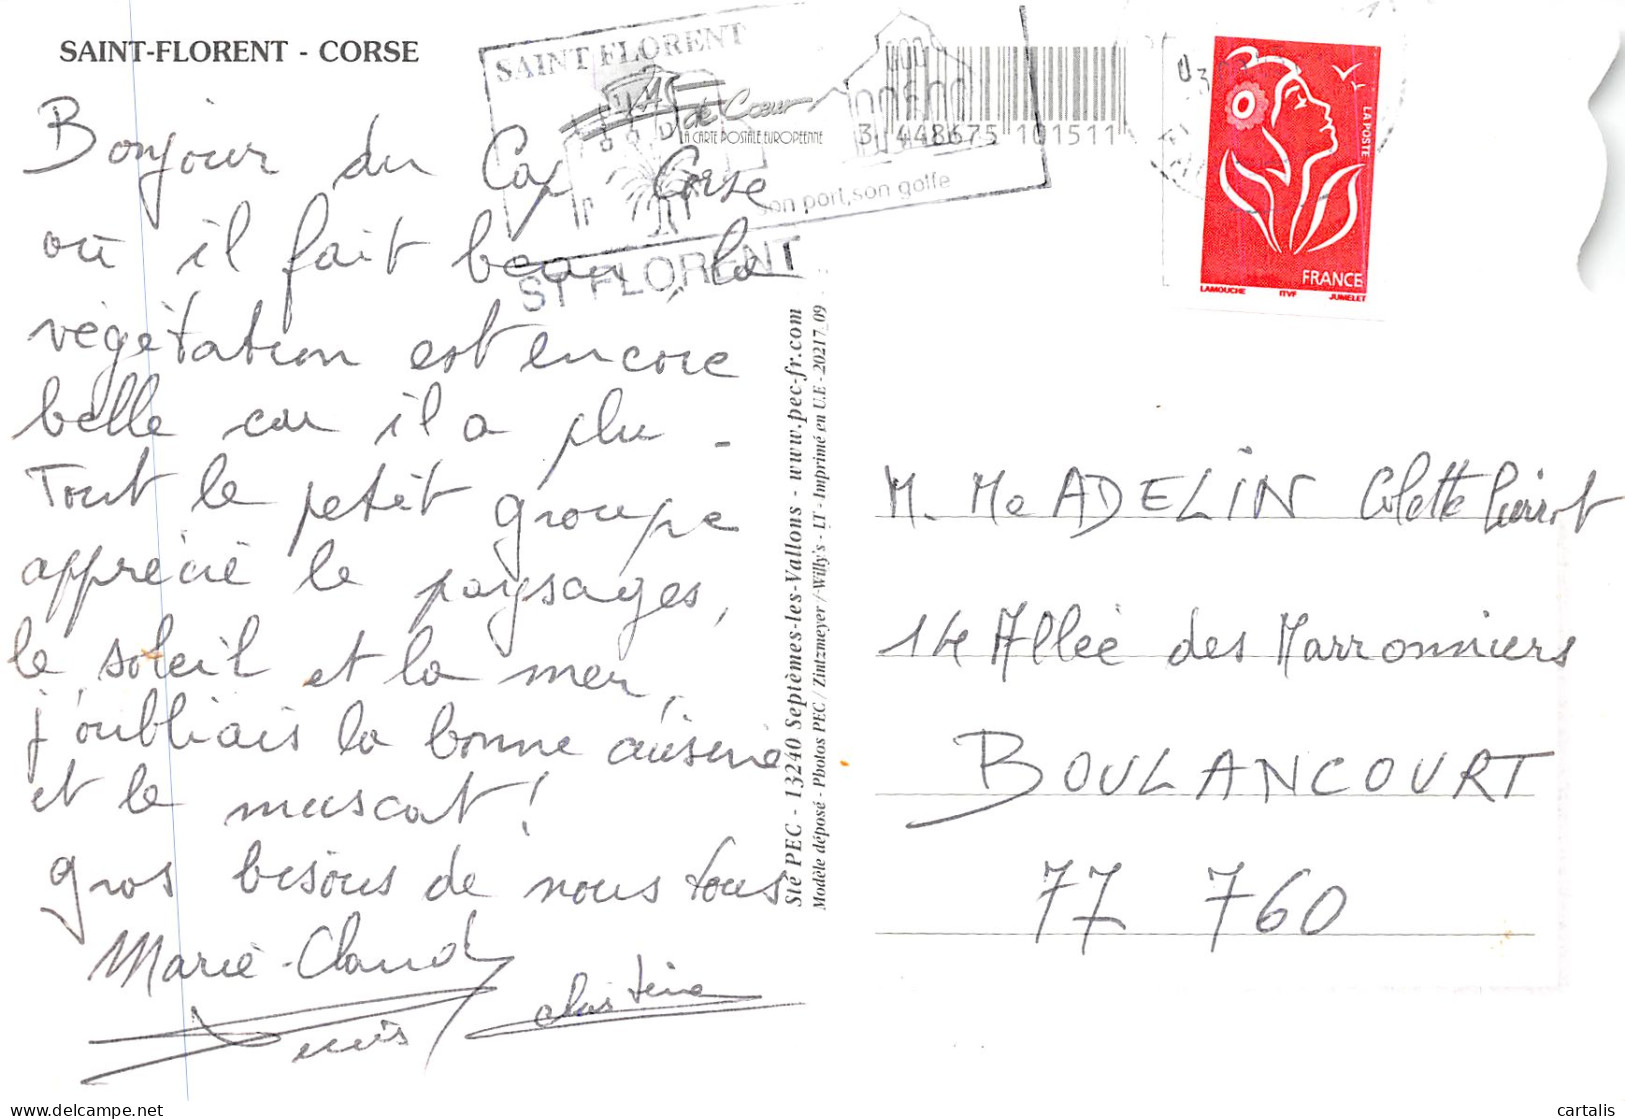 SAINT-FLORENT - CORSE
SAINT FLORENT
de Cœur
LA CARTE POSTALE EUROPEENNE
3 448675 101511
son port, son golfe
ST FLORENT
LA POSTE
FRANCE
LAMOUCHE ITVF JUMELET
Bonjour du Cap Corse
où il fait beau, la
végétation est encore
belle car il a plu.
Tout le petit groupe
apprécie le paysages,
le soleil et la mer,
j'oubliais la bonne cuisine
et le muscat !
gros bisous de nous tous
Marie-Claude
Denis Christine
Sté PEC - 13240 Septèmes-les-Vallons - www.pec-fr.com
Modèle déposé - Photos PEC / Zintzmeyer / Willy's - LT - Imprimé en U.E - 20217_09
M. Me ADELIN Colette Pierrot
14 Allée des Marronniers
BOULANCOURT
77 760
delcampe.net
cartalis